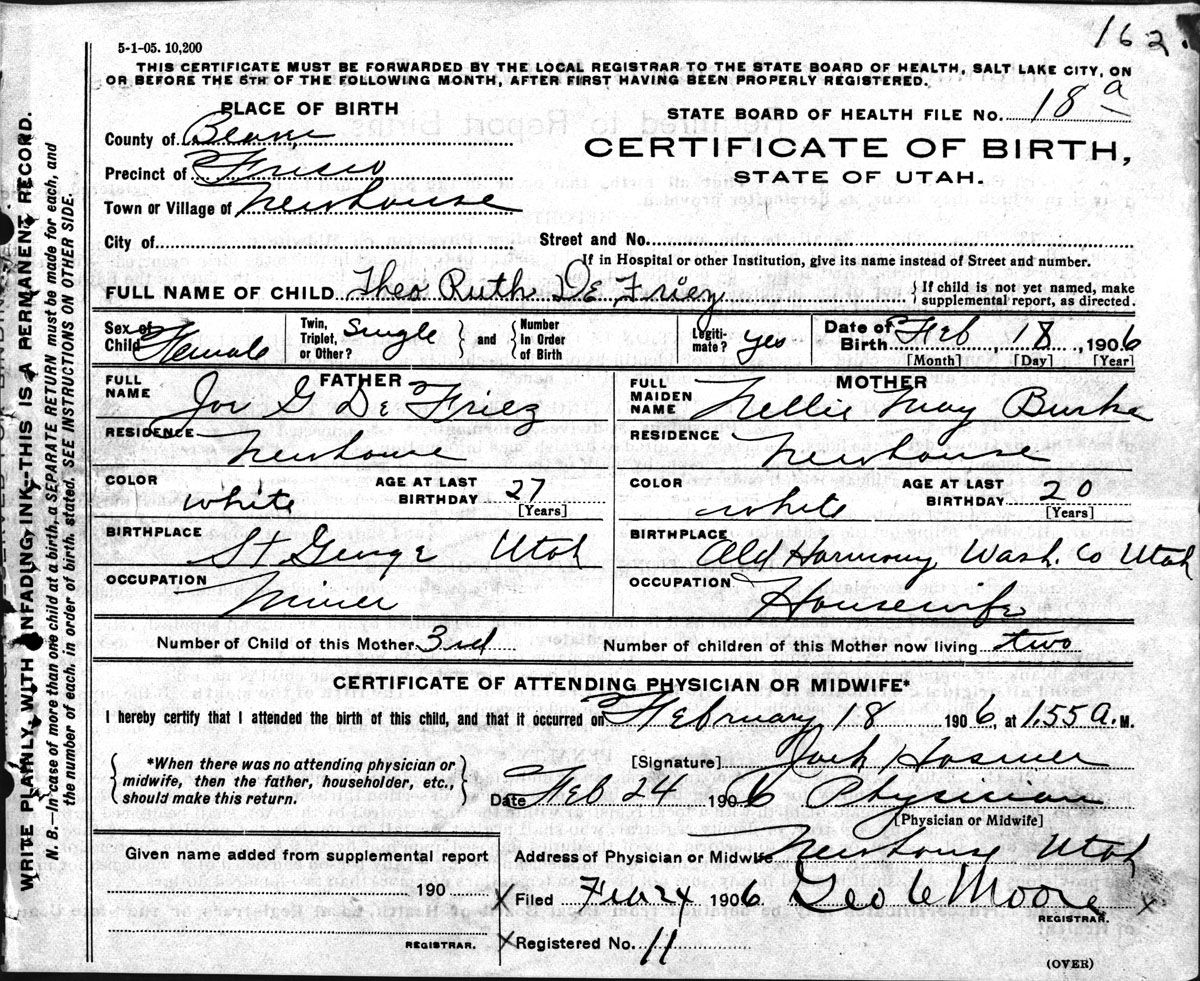 162.
5-1-05. 10,200
THIS CERTIFICATE MUST BE FORWARDED BY THE LOCAL REGISTRAR TO THE STATE BOARD OF HEALTH, SALT LAKE CITY, ON
OR BEFORE THE 5TH OF THE FOLLOWING MONTH, AFTER FIRST HAVING BEEN PROPERLY REGISTERED.
PLACE OF BIRTH
STATE BOARD OF HEALTH FILE No. 18 a
County of Beaver
CERTIFICATE OF BIRTH,
Precinct of Frisco
STATE OF UTAH.
Town or Village of Newhouse
City of Street and No.
If in Hospital or other Institution, give its name instead of Street and number.
FULL NAME OF CHILD Theo Ruth De Friez { If child is not yet named, make supplemental report, as directed.
Sex of Child Female Twin, Triplet, or Other? Single } and { Number in Order of Birth Legiti-mate? yes Date of Birth Feb 18, 1906
[Month] [Day] [Year]
FATHER MOTHER
FULL NAME Jos G De Friez FULL MAIDEN NAME Nellie May Burke
RESIDENCE Newhouse RESIDENCE Newhouse
COLOR white AGE AT LAST BIRTHDAY 27 [Years] COLOR white AGE AT LAST BIRTHDAY 20 [Years]
BIRTHPLACE St George Utah BIRTHPLACE Old Harmony Wash. Co Utah
OCCUPATION Miner OCCUPATION Housewife
Number of Child of this Mother 3rd Number of children of this Mother now living two
CERTIFICATE OF ATTENDING PHYSICIAN OR MIDWIFE*
I hereby certify that I attended the birth of this child, and that it occurred on February 18 1906, at 1.55 A. M.
{ *When there was no attending physician or midwife, then the father, householder, etc., should make this return. }
[Signature] Hosmer
Date Feb 24 1906 Physician
[Physician or Midwife]
Given name added from supplemental report
Address of Physician or Midwife Newhouse Utah
190
X Filed Feb 24 1906. Geo C Moore X
REGISTRAR.
REGISTRAR.
X Registered No. 11
(OVER)
WRITE PLAINLY WITH UNFADING INK--THIS IS A PERMANENT RECORD.
N. B.--In case of more than one child at a birth, a SEPARATE RETURN must be made for each, and
the number of each, in order of birth, stated. SEE INSTRUCTIONS ON OTHER SIDE.